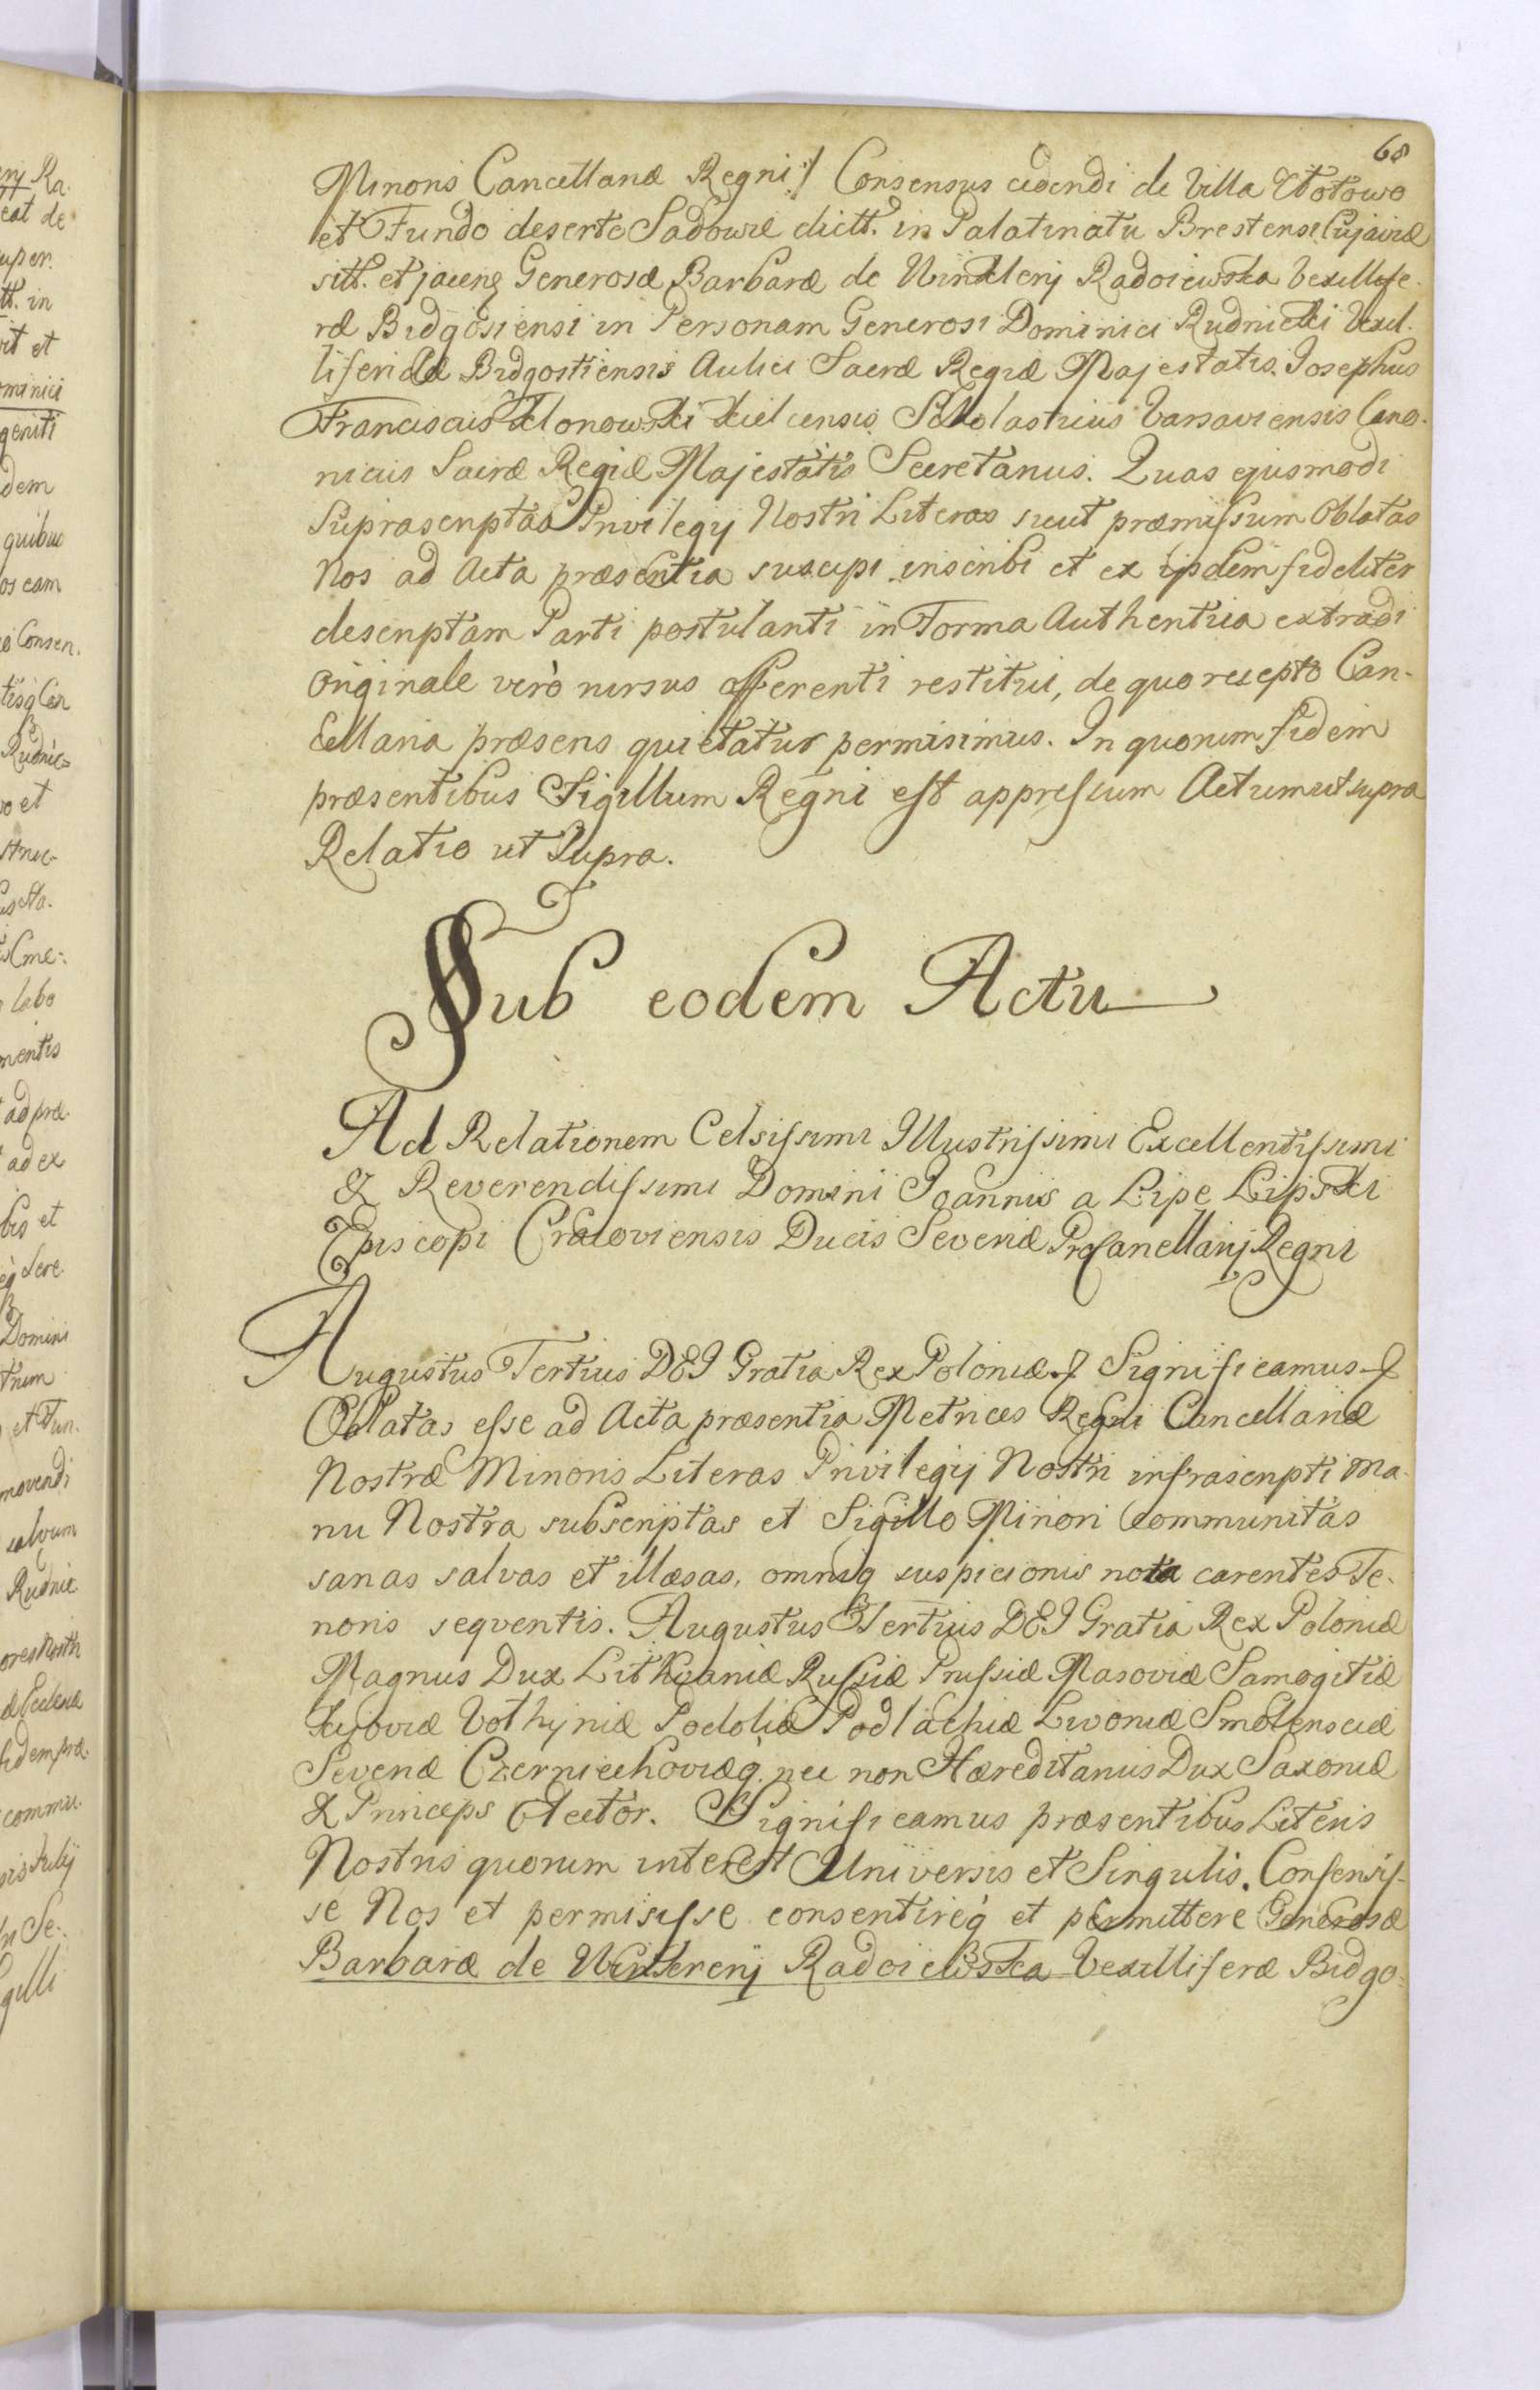 68
Minoris Cancellariæ Regni./ Consensus cedendi de Villa
et Fundo deserto Sadowie dictt. in Palatinatu Brestensi Cujaviæ
sitt. et jacenq Generosæ Barbaræ de Winklerij Radoiewska Vexillife-
ræ Bidgosiensi in Personam Generosi Dominici Rudnicki Vexil-
liferidæ Bidgostiensis Aulici Sacræ Regiæ Majestatis. Josephus
Franciscus Klonowski Kielcensis Scholasticus Varsaviensis Cano-
nicus Sacræ Regiæ Majestatis Secretarius. Quas ejusmodi
Suprascriptas Privilegij Nostri Literas sicut præmissum Oblatas
Nos ad Acta præsentia suscipi inscribi et ex ijsdem fideliter
descriptam Parti postulanti in Forma Authentica extradi
Originale verò rursus offerenti restitui, de quo recepto Can-
cellaria præsens quietatur permisimus. In quorum fidem
præsentibus Sigillum Regni est appressum Actum ut supra
Relatio ut Supra.
Sub eodem Actu
Ad Relationem Celsissimi Illustrissimi Excellentissimi
& Reverendissimi Domini Joannis a Lipe Lipski
Episcopi Cracoviensis Ducis Severiæ ProCancellarij Regni
Augustus Tertius DEI Gratia Rex Poloniæ Significamus
Oblatas esse ad Acta præsentia Metrices Regni Cancellariæ
Nostræ Minoris Literas Privilegij Nostri infrascripti Ma-
nu Nostra subscriptas et Sigillo Minori Communitas
sanas salvas et illæsas, omniq suspicionis nota carentes Te-
noris seqventis. Augustus Tertius DEI Gratia Rex Poloniæ
Magnus Dux Lithvaniæ Russiæ Prussiæ Masoviæ Samogitiæ
Kijoviæ Volhyniæ Podoliæ Podlachiæ Livoniæ Smolensciæ
Severiæ Czerniechoviæq. nec non Hæreditarius Dux Saxoniæ
& Princeps Elector. Significamus præsentibus Literis
Nostris quorum interest Universis et Singulis. Consensis-
se Nos et permisisse consentireq et permittere Generosæ
Barbaræ de Winklerij Radoiewska Vexilliferæ Bidgo-